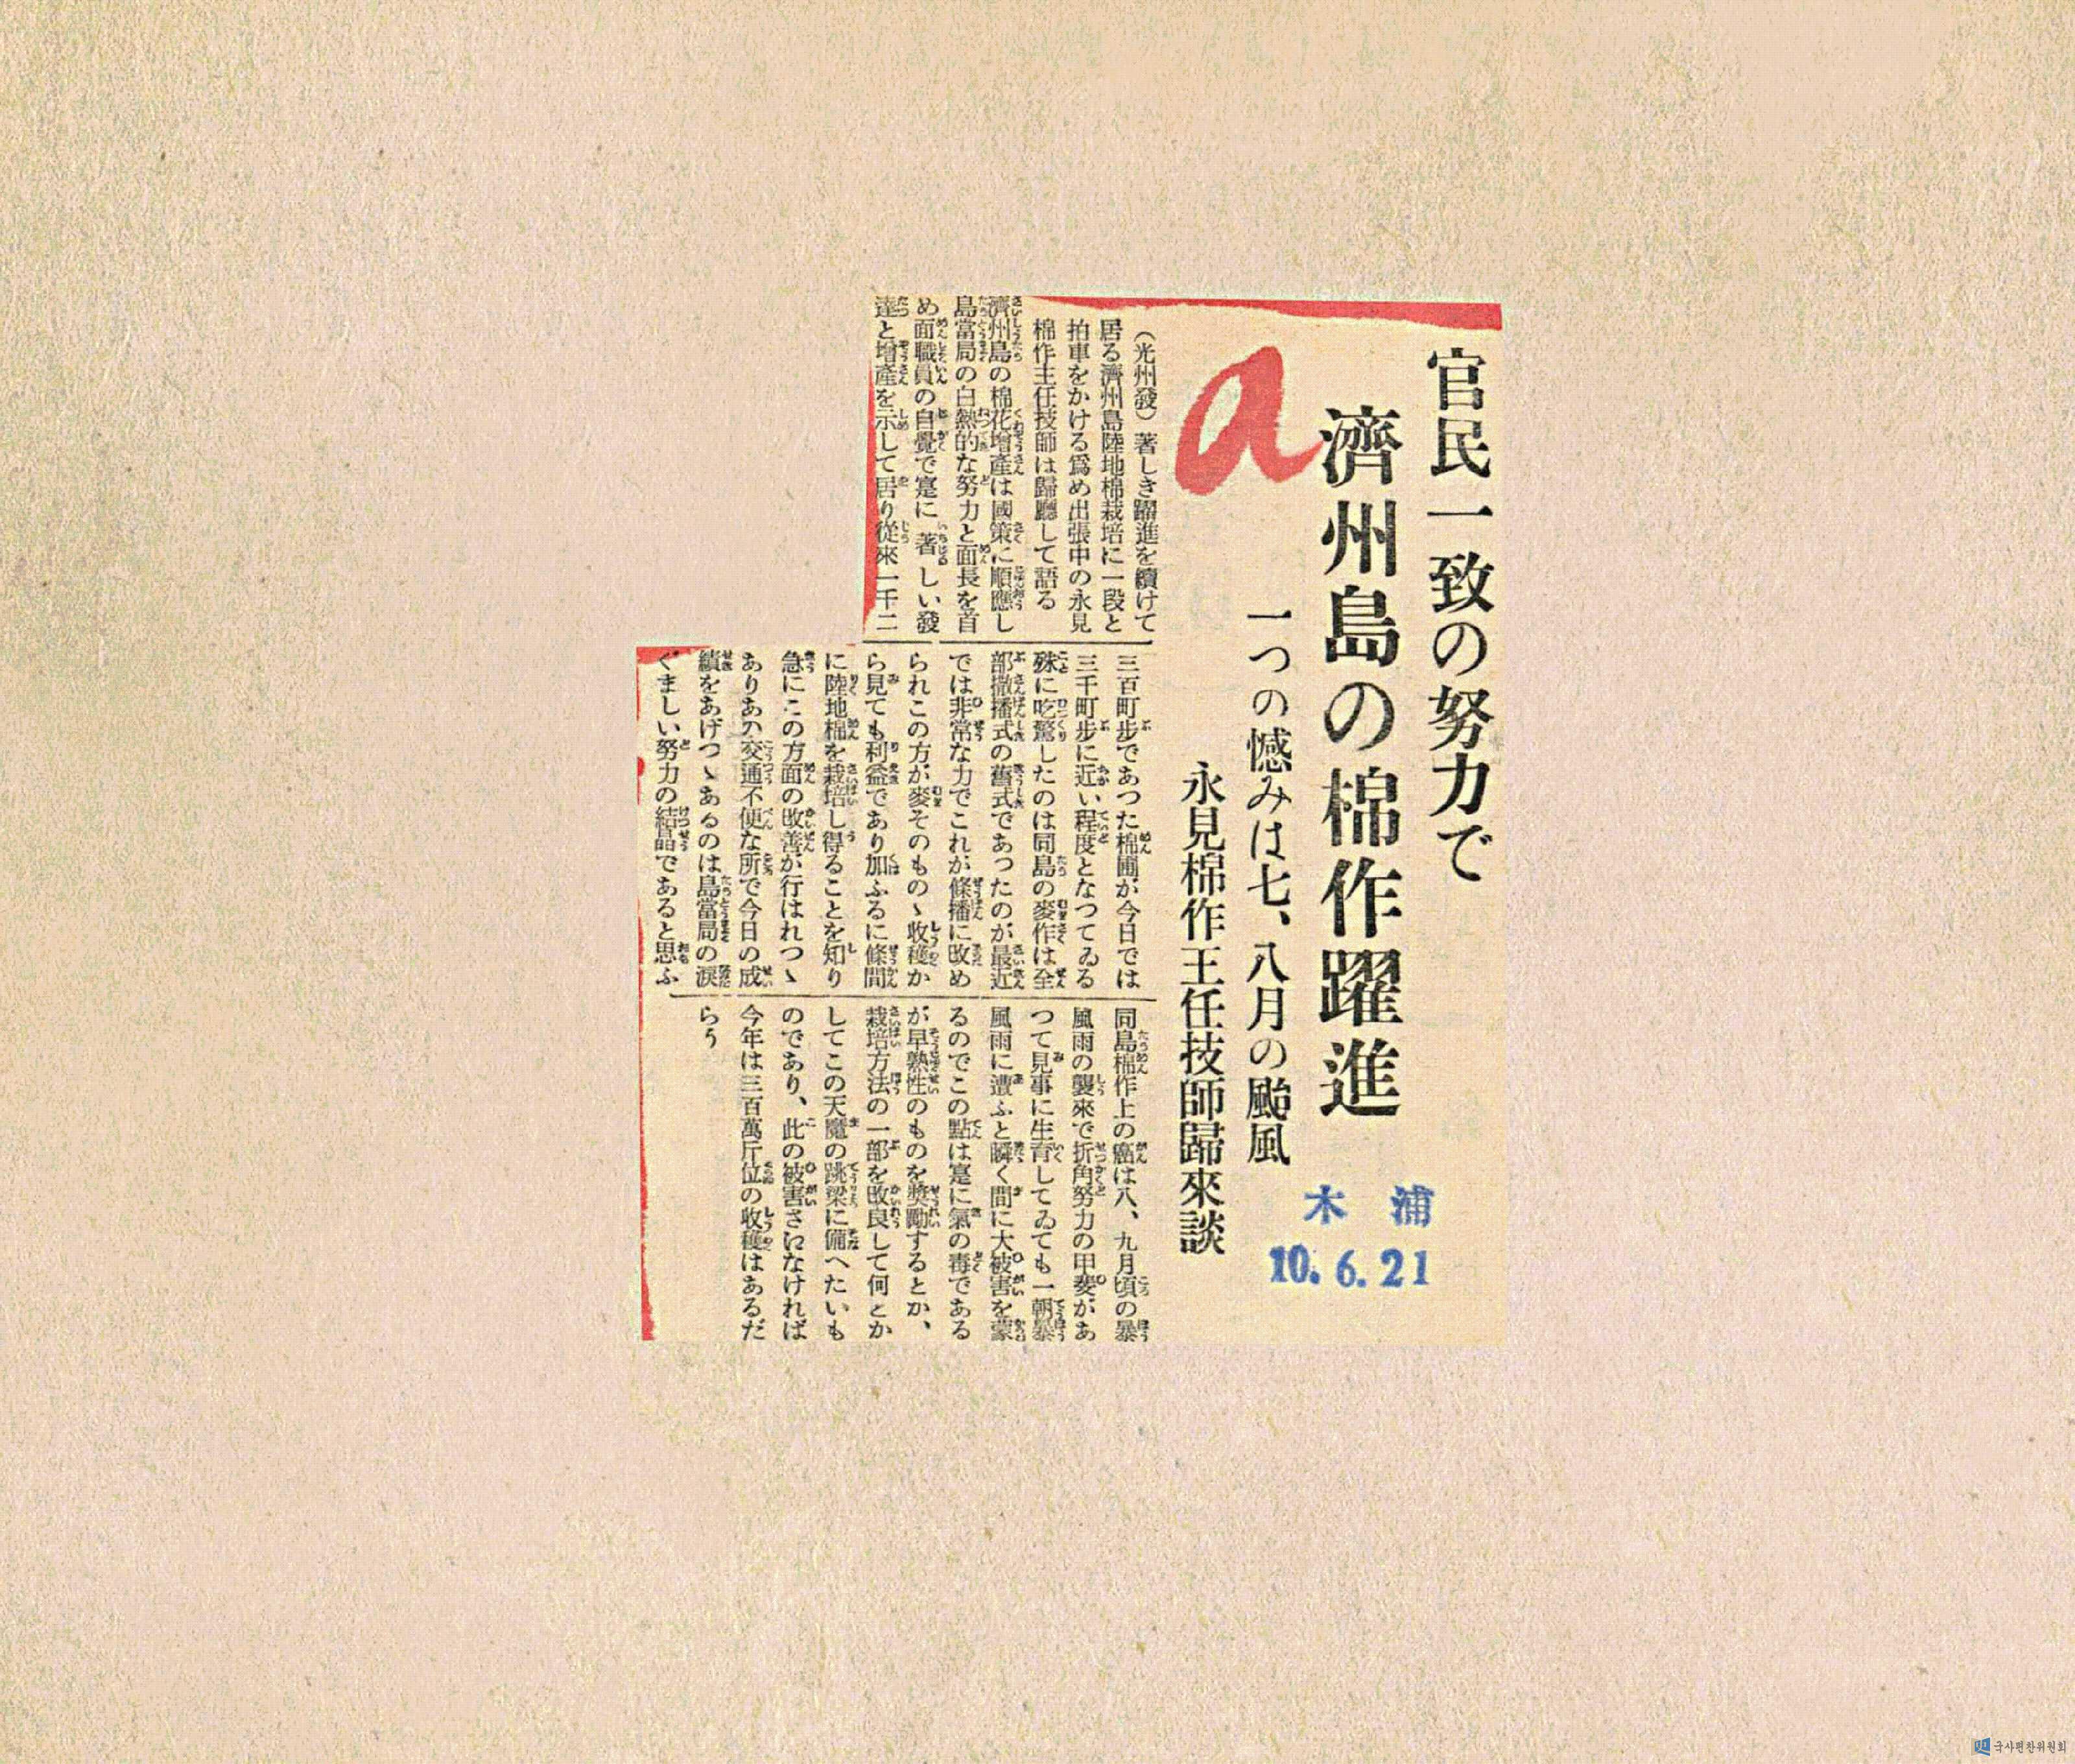 官民一致の努力で
濟州島の棉作躍進
一つの憾みは七、八月の颱風
永見棉作主任技師歸來談
a
木浦
10.6.21
(光州發)著しき躍進を續けて
居る濟州島陸地棉栽培に一段と
拍車をかける爲め出張中の永見
棉作主任技師は歸廳して語る
濟州島の棉花增產は國策に順應し
島當局の白熱的な努力と面長を首
め面職員の自覺で寔に著しい發
達と增產を示して居り從來一千二
三百町步であつた棉圃が今日では
三千町步に近い程度となつてゐる
殊に吃驚したのは同島の麥作は全
部撒播式の舊式であつたのが最近
では非常な力でこれが條播に改め
られこの方が麥そのものゝ收穫か
ら見ても利益であり加ふるに條間
に陸地棉を栽培し得ることを知り
急にこの方面の改善が行はれつゝ
ありあの交通不便な所で今日の成
績をあげつゝあるのは島當局の淚
ぐましい努力の結晶であると思ふ
同島棉作上の癌は八、九月頃の暴
風雨の襲來で折角努力の甲斐があ
つて見事に生育してゐても一朝暴
風雨に遭ふと瞬く間に大被害を蒙
るのでこの點は寔に氣の毒である
が早熟性のものを獎勵するとか、
栽培方法の一部を改良して何とか
してこの天魔の跳梁に備へたいも
のであり、此の被害さへなければ
今年は三百萬斤位の收穫はあるだ
らう
국사편찬위원회